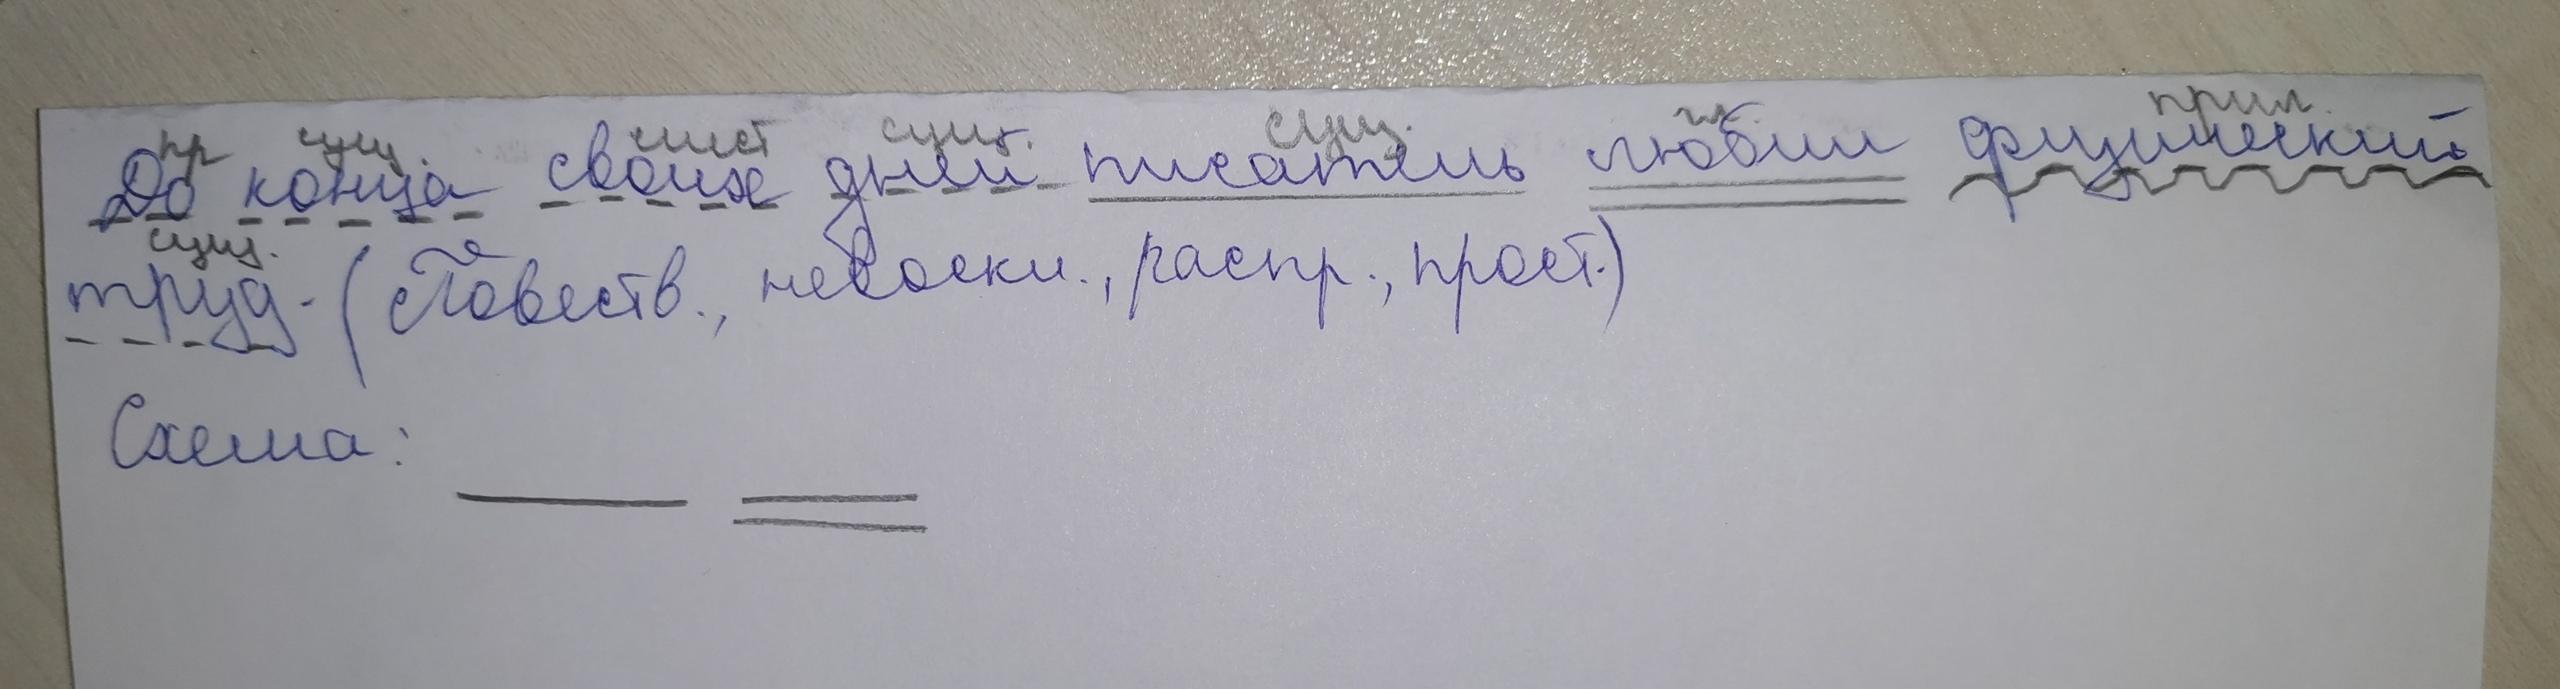 пр сущ. мест сущ. сущ. гл. прил.
До конца своих дней писатель любил физический
сущ.
труд. (Повеств., невоскл., распр., прост.)
Схема: